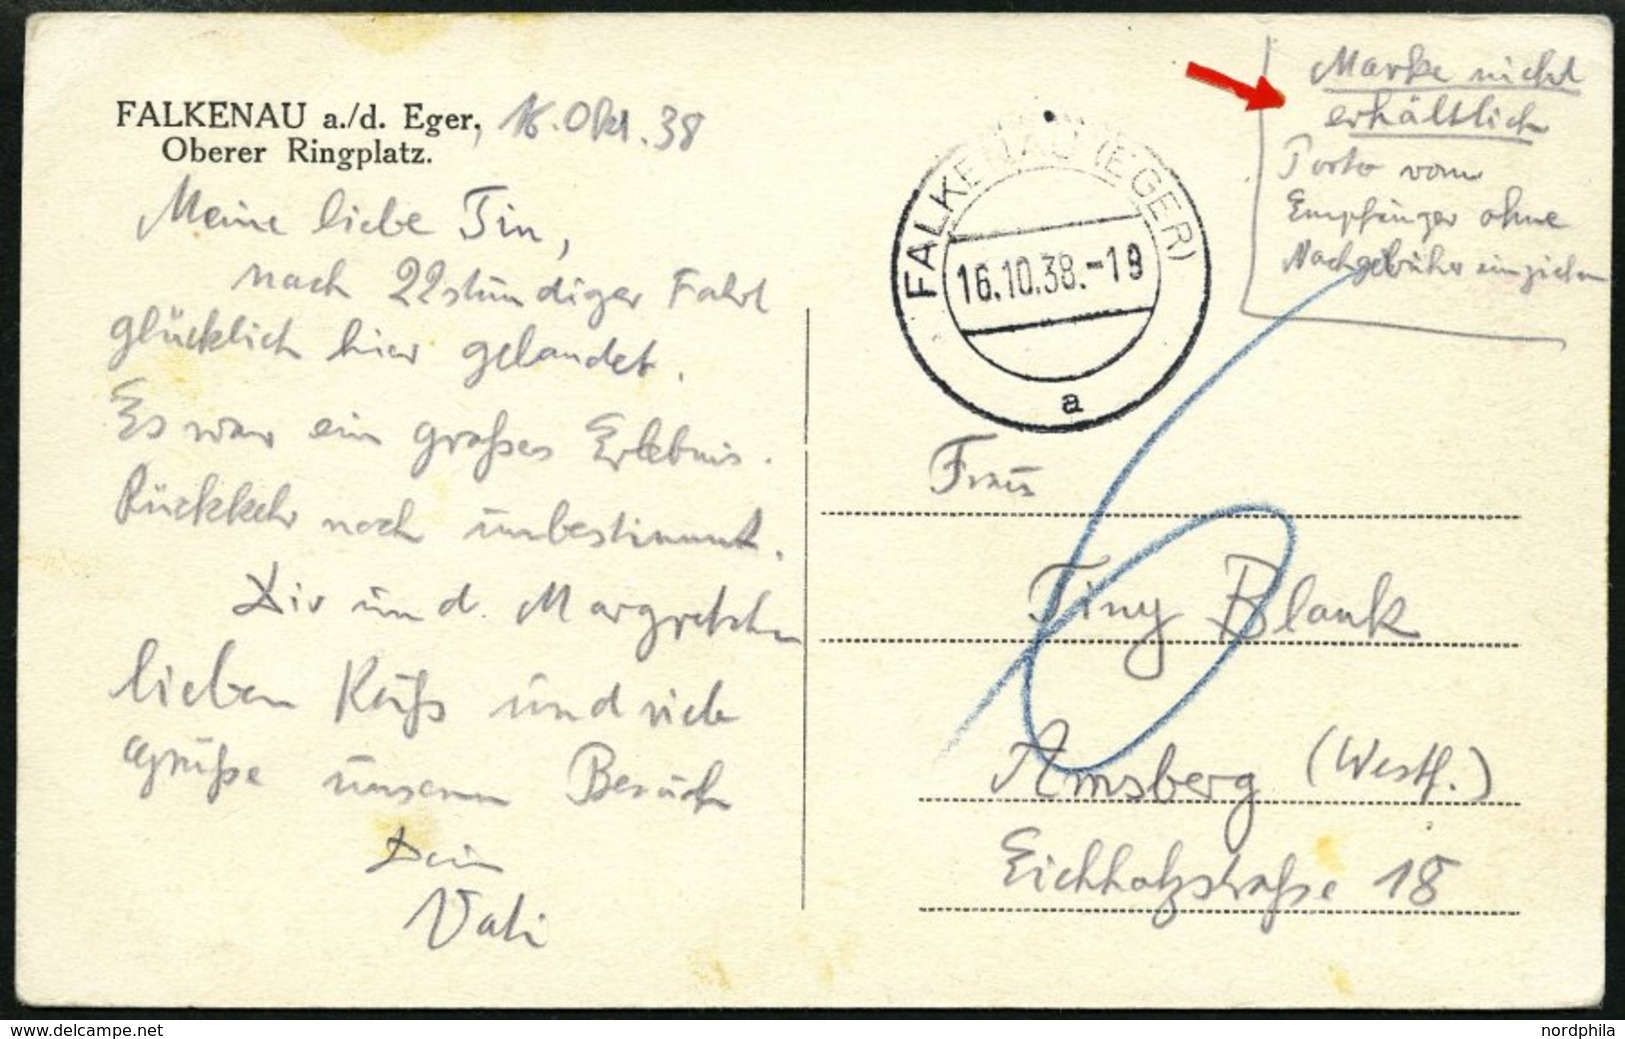 FALKENAU a./d. Eger, 16. Okt. 38
Oberer Ringplatz.
Meine liebe Tin,
nach 22stündiger Fahrt
glücklich hier gelandet.
Es war ein großes Erlebnis.
Rückkehr noch unbestimmt.
Dir und Margretchen
lieben Kuß und viele
Grüße unserem Besuch
Dein
Vati
FALKENAU (EGER)
16.10.38.-19
a
Marke nicht
erhältlich
Porto vom
Empfänger ohne
Nachgebühr einziehen
6
Frau
Tiny Blank
Arnsberg (Westf.)
Eichholzstraße 18
www.delcampe.net
nordphila